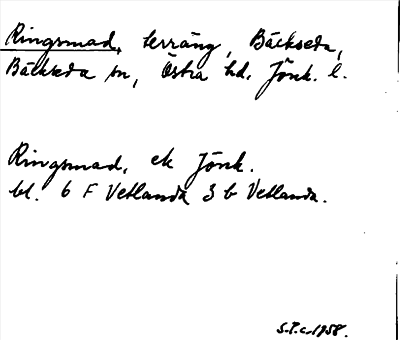 Ringsmad, terräng, Bäckseda,
Bäckseda sn, Östra hd, Jönk. l.
Ringsmad, ek Jönk.
bl. 6 F Vetlanda 3 b Vetlanda.
S.T.c. 1958.